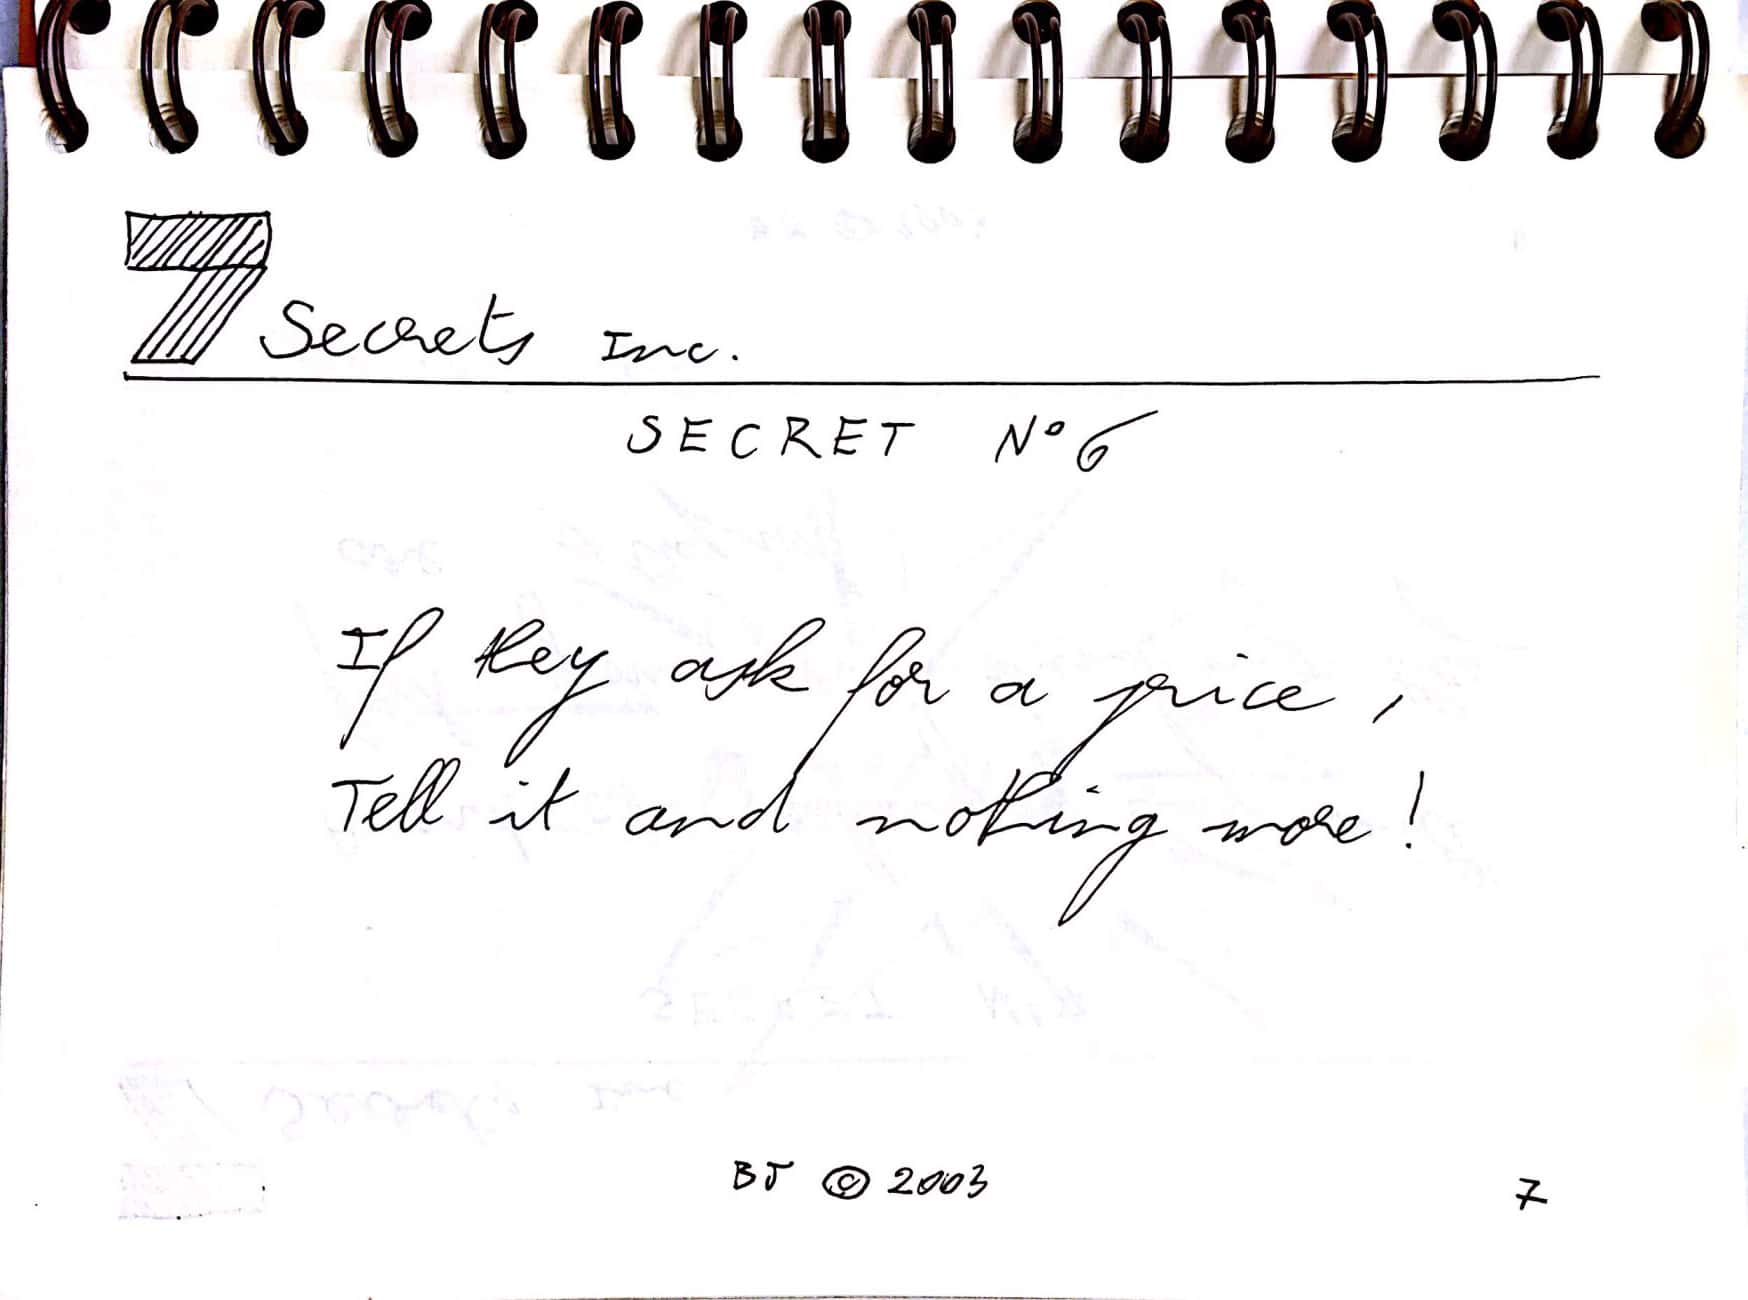 7 Secrets Inc.
SECRET N° 6
If they ask for a price,
Tell it and nothing more!
BJ © 2003
7